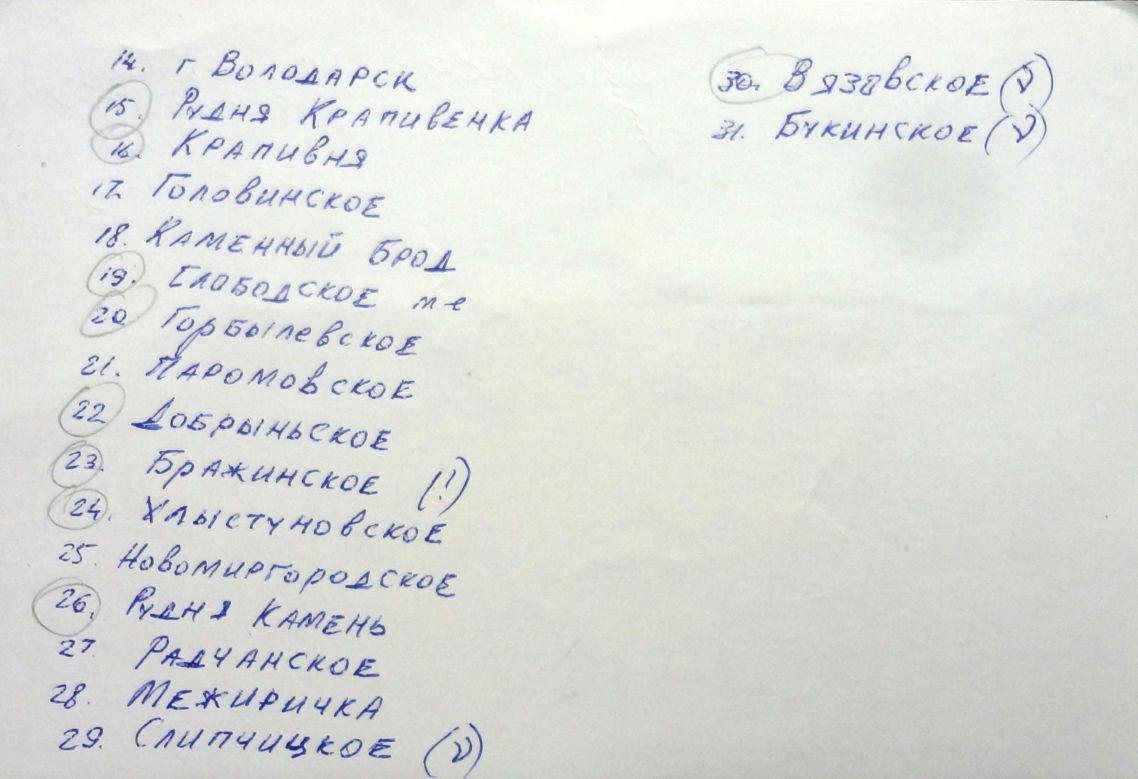 14. г. Володарск
15. Рудня Крапивенка
16. Крапивня
17. Головинское
18. Каменный брод
19. Слободское м-е
20 Горбылевское
21. Паромовское
22 Добрыньское
23. Бражинское (!!)
24. Хлыстуновское
25. Новомиргородское
26. Рудня Камень
27. Радчанское
28. Межиричка
29. Слипчицкое (V)
30. Вязовское (V)
31. Букинское (V)